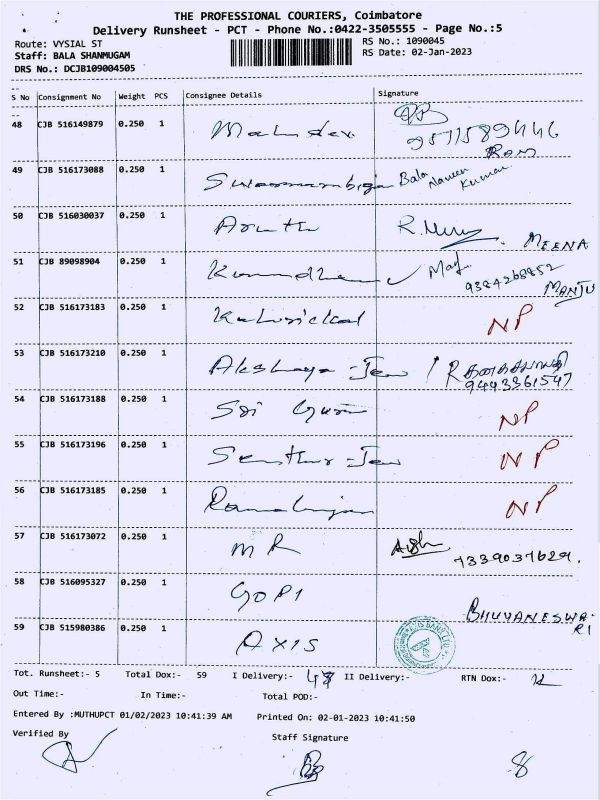 THE PROFESSIONAL COURIERS, Coimbatore
Delivery Runsheet - PCT - Phone No.:0422-3505555 - Page No.:5
Route: VYSIAL ST RS No.: 1090045
Staff: BALA SHANMUGAM RS Date: 02-Jan-2023
DRS No.: DCJB109004505
S No Consignment No Weight PCS Consignee Details Signature
48 CJB 516149879 0.250 1 Mahadev
Ram
49 CJB 516173088 0.250 1 Bala Naveen Kumar
50 CJB 516030037 0.250 1 R. MEENA
51 CJB 89098904 0.250 1 9384268852
MANJU
52 CJB 516173183 0.250 1 NP
53 CJB 516173210 0.250 1 Akshaya - Jew
9443361547
54 CJB 516173188 0.250 1 Sri Guru NP
55 CJB 516173196 0.250 1 Senthur - Jew NP
56 CJB 516173185 0.250 1 Ramalingam NP
57 CJB 516173072 0.250 1 MR
58 CJB 516095327 0.250 1 GOPI BHUVANESWARI
59 CJB 515980386 0.250 1 AXIS AXIS BANK LTD
Tot. Runsheet:- 5 Total Dox:- 59 I Delivery:- 47 II Delivery:- RTN Dox:- 12
Out Time:- In Time:- Total POD:-
Entered By :MUTHUPCT 01/02/2023 10:41:39 AM Printed On: 02-01-2023 10:41:50
Verified By Staff Signature